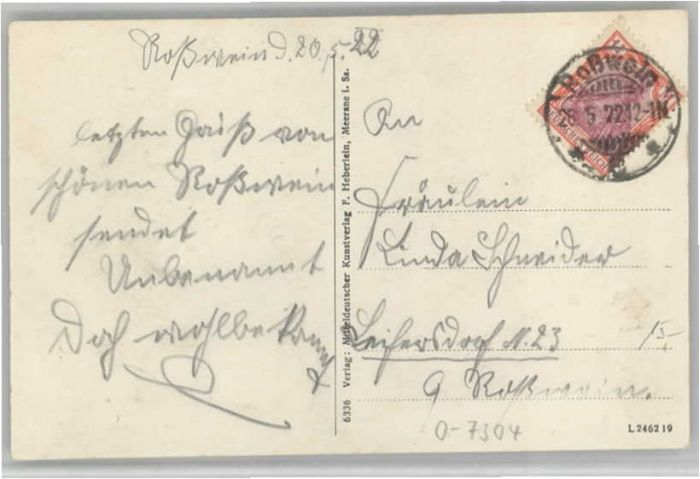 Roßwein d. 20.5.22
letzten Gruß von
schönen Roßwein
sendet
Unbenannt
Doch wohlbekannt
6336 Verlag: Mitteldeutscher Kunstverlag F. Heberlein, Meerane i. Sa.
Roßwein
5 22 12-1N
An
Fräulein
Linda Schneider
Leifersdorf N. 23
b Roßwein.
15,-
O-7304
L 2462 19